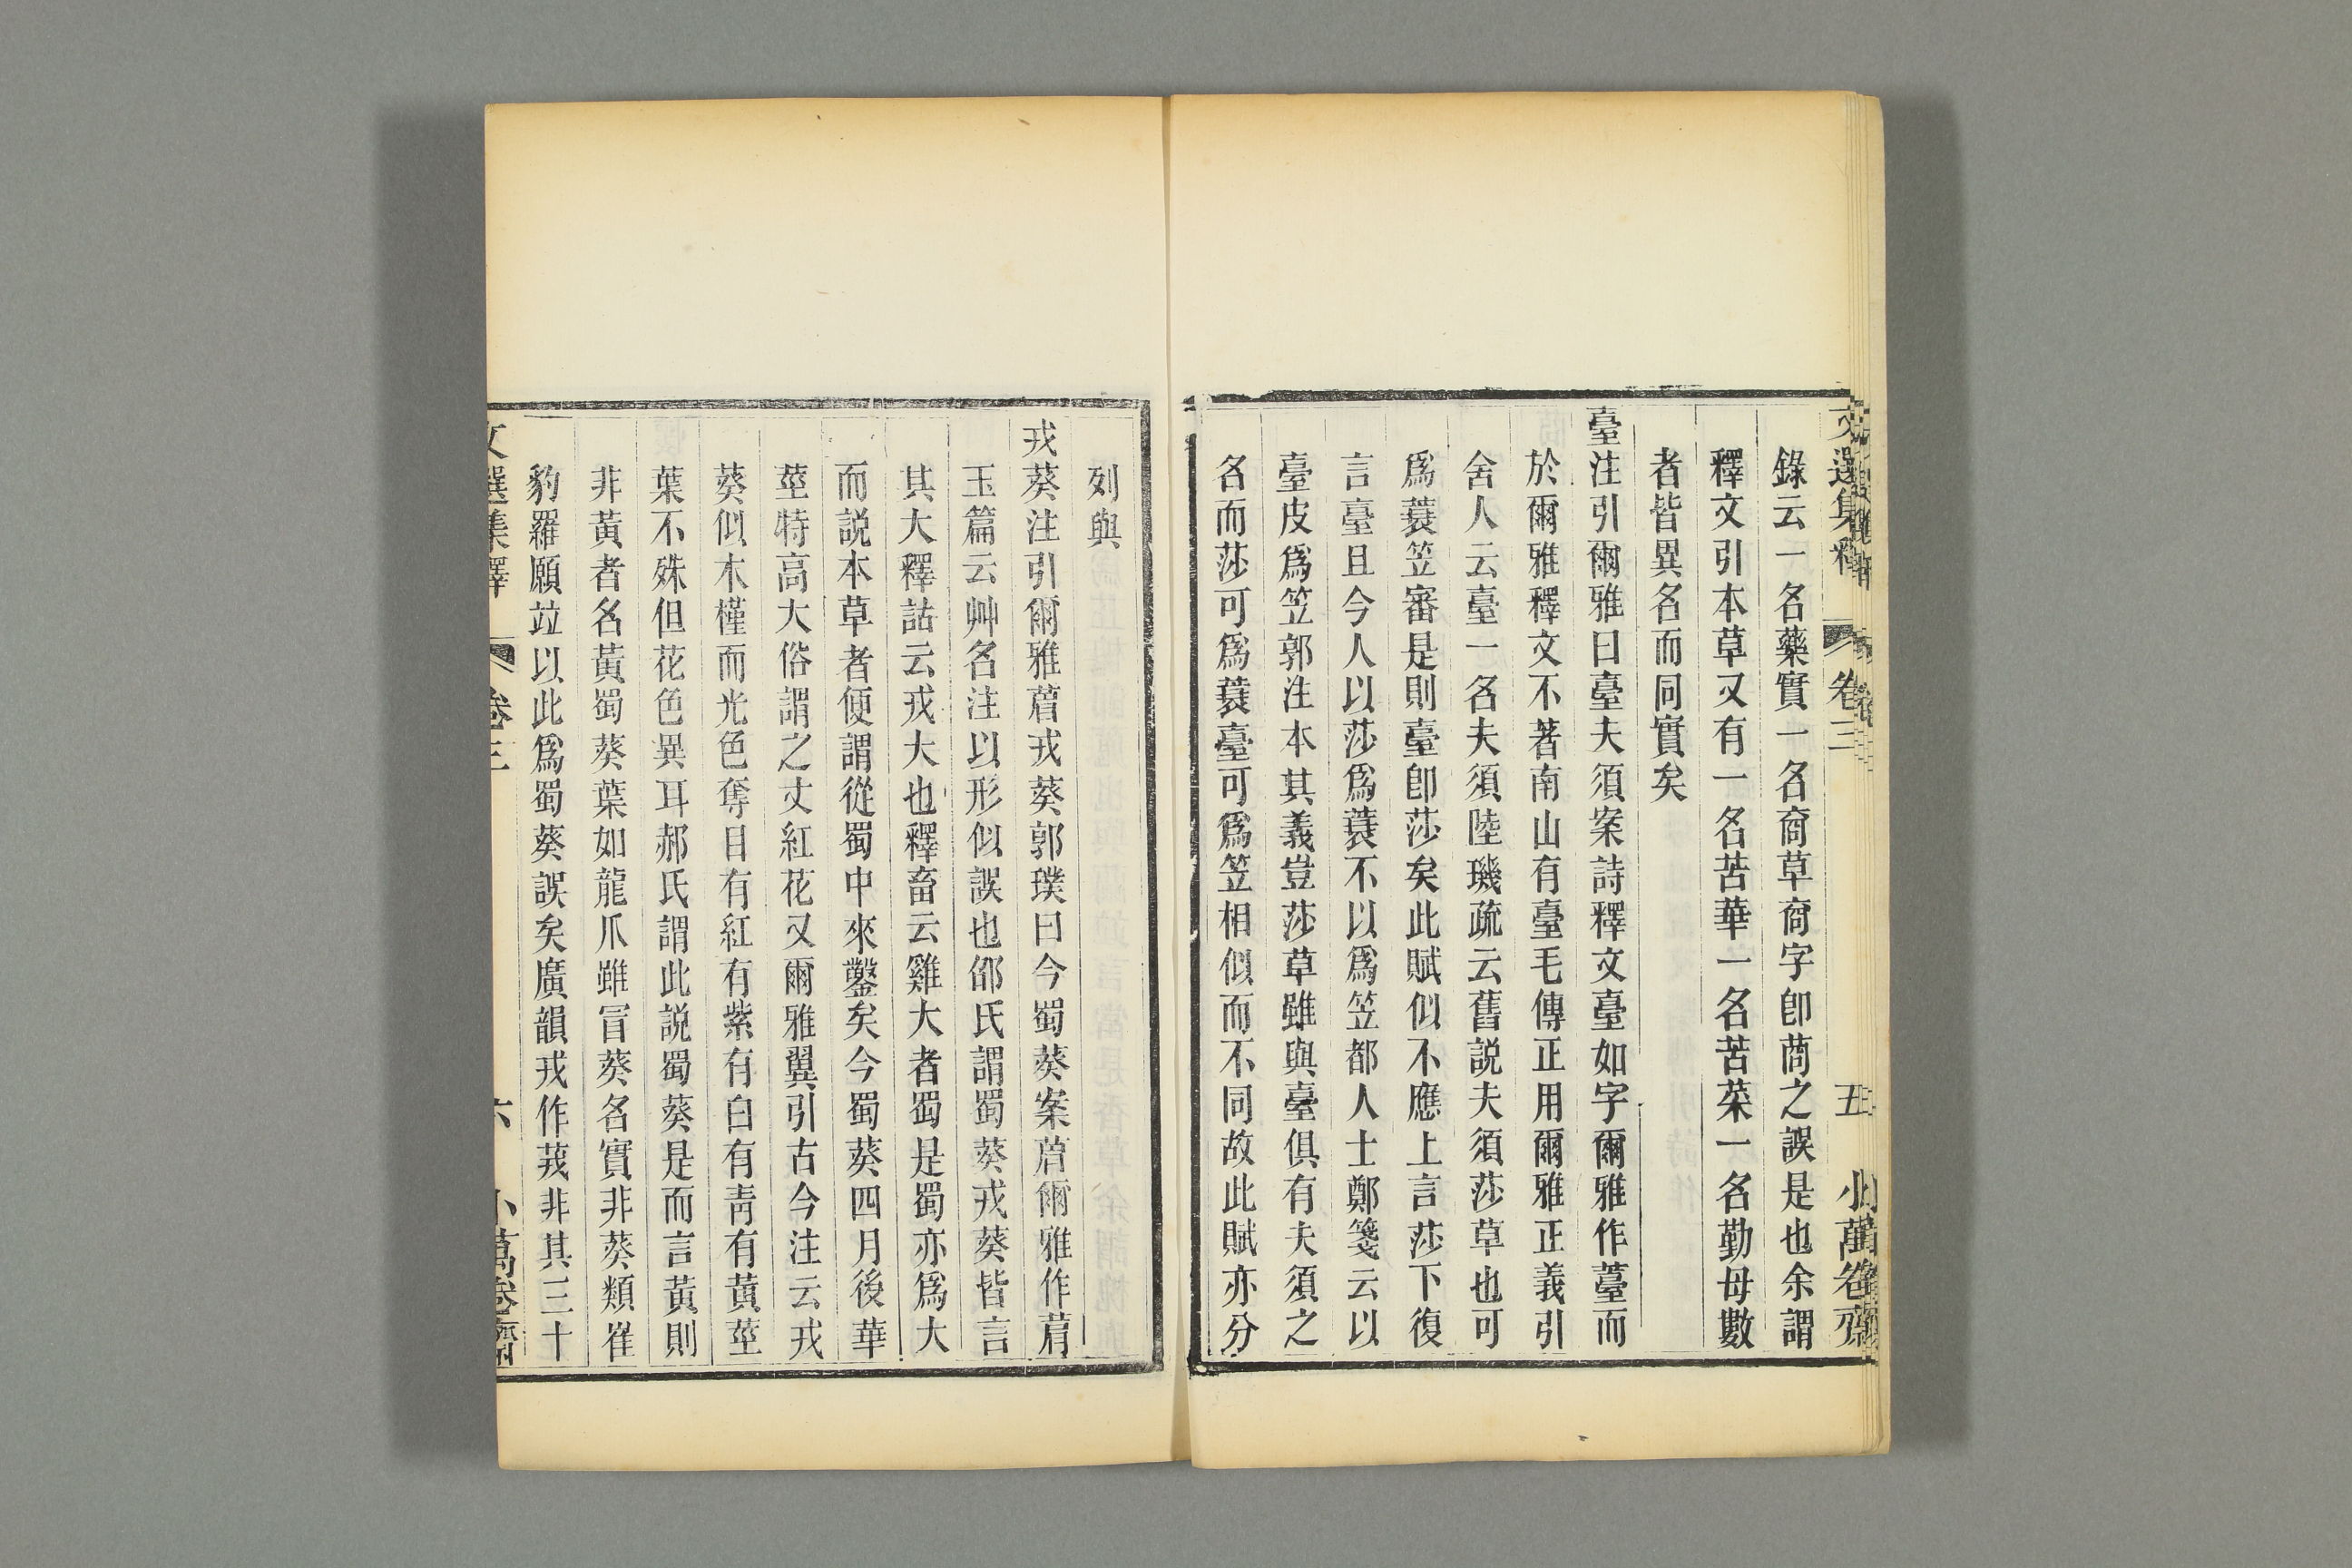 文選集釋 卷三 五 小萬卷齋
錄云一名藥實一名裔草裔字卽苘之誤是也余謂
釋文引本草又有一名苦華一名苦菜一名勤母數
者皆異名而同實矣
臺注引爾雅曰臺夫須案詩釋文臺如字爾雅作薹而
於爾雅釋文不著南山有臺毛傳正用爾雅正義引
舍人云臺一名夫須陸璣疏云舊説夫須莎草也可
爲蓑笠審是則臺卽莎矣此賦似不應上言莎下復
言臺且今人以莎爲蓑不以爲笠都人士鄭箋云以
臺皮爲笠郭注本其義豈莎草雖與臺俱有夫須之
名而莎可爲蓑臺可爲笠相似而不同故此賦亦分
列與
戎葵注引爾雅菺戎葵郭璞曰今蜀葵案菺爾雅作菺
玉篇云艸名注以形似誤也邵氏謂蜀葵戎葵皆言
其大釋詁云戎大也釋畜云雞大者蜀是蜀亦爲大
而説本草者便謂從蜀中來鑿矣今蜀葵四月後華
莖特高大俗謂之丈紅花又爾雅翼引古今注云戎
葵似木槿而光色奪目有紅有紫有白有靑有黃莖
葉不殊但花色異耳郝氏謂此説蜀葵是而言黃則
非黃者名黃蜀葵葉如龍爪雖冒葵名實非葵類崔
豹羅願竝以此爲蜀葵誤矣廣韻戎作茙非其三十
文選集釋 卷三 六 小萬卷齋